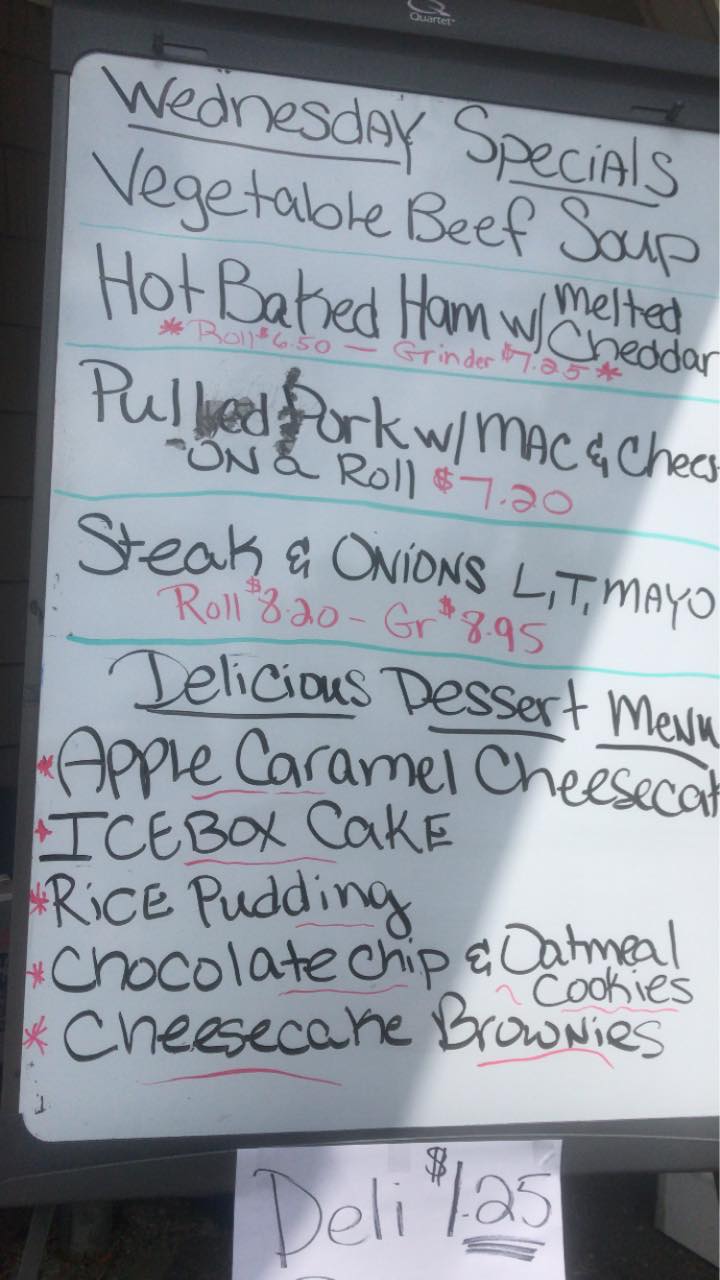 Quartet
Wednesday Specials
Vegetable Beef Soup
Hot Baked Ham w/ Melted Cheddar
* Roll $6.50 — Grinder $7.25 *
Pulled Pork w/ MAC & Chees
ON a Roll $7.20
Steak & ONIONS L, T, MAYO
Roll $8.20 - Gr $8.95
Delicious Dessert Menu
* Apple Caramel Cheesecak
* ICEBOX CAKE
* RICE Pudding
* Chocolate chip & Oatmeal Cookies
* Cheesecake Brownies
Deli $1.25